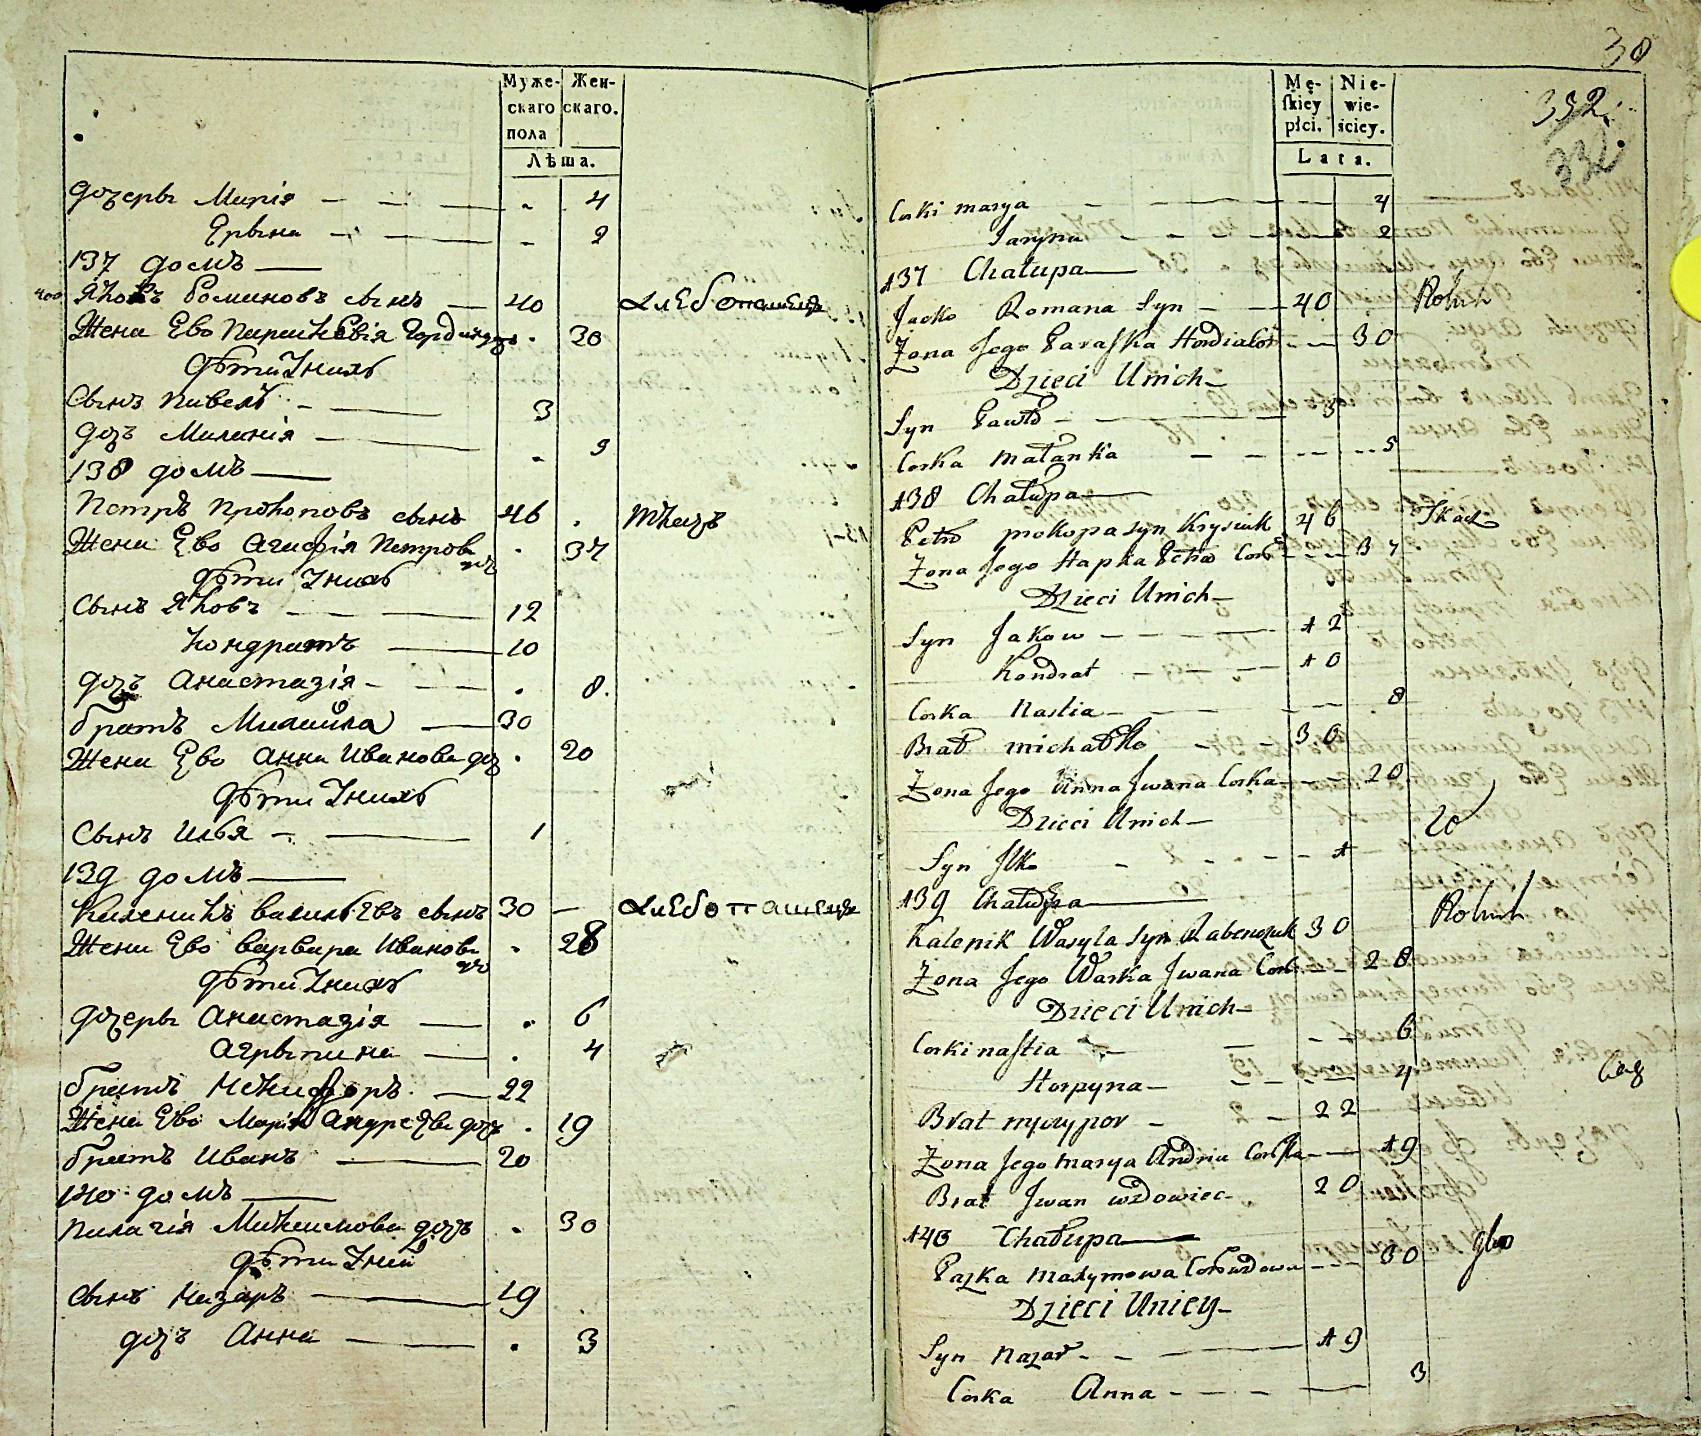 Муже-
скаго
пола
Жен-
скаго.
Лѣта.
дочеры Марія 4
Ерына 2
137 домъ
Яковъ Романовъ сынъ 40 хлебопашецъ
Жена Ево Параскевія Гордия дочь 30
дѣти Ѹнихъ
Сынъ Павелъ 3
дочъ Маланія 5
138 домъ
Петръ Прокоповъ сынъ 46 ткачъ
Жена Ево Агафія Петрова дочъ 37
дѣти Ѹнихъ
Сынъ Яковъ 12
Кондратъ 10
дочъ Анастазія 8.
братъ Михайла 30
Жена Ево Анна Иванова доч 20
дѣти Ѹнихъ
Сынъ Илья 1
139 домъ
Каленикъ Васильевъ сынъ 30 хлебопашецъ
Жена Ево Варвара Иванова дочъ 28
дѣти Ѹнихъ
дочеры Анастазія 6
Агрыпина 4
братъ Никифоръ 22
Жена Ево Марія Андреева дочъ 19
братъ Иванъ 20
140 домъ
Палагія Максимова дочъ 30
дѣти Ѹней
Сынъ Назаръ 19
дочъ Анна 3
30
332.
332
Mę-
ſkiey
płci.
Nie-
wie-
ściey.
Lata.
Corki marya 4
Jaryna 2
137 Chałupa
Jacko Romana Syn 40 Rolnik
Zona Jego Paraſka Hordia Cor 30
Dzieci Unich
Syn Pawło 3
Corka małanka 5
138 Chałupa
Petro prokopa syn Krysiuk 46 Tkacz
Zona Jego Hapka Petra Cor 37
Dzieci Unich
Syn Jakow 12
Kondrat 10
Corka Nastia 8
Brat michałko 30
Zona Jego Anna Jwana Corka 20
Dzieci Unich
Syn Jlko 1
139 Chałupa
Kalenik Wasyla Syn 30 Rolnik
Zona Jego Warka Jwana Cor 28
Dzieci Unich
Corki naſtia 6
Horpyna 4
Brat 22
Zona Jego marya Andria Corka 19
Brat Jwan wdowiec 20
140 Chałupa
Pazka maxymowa Cor wdowa 30
Dzieci Unicy
Syn Nazar 19
Corka Anna 3